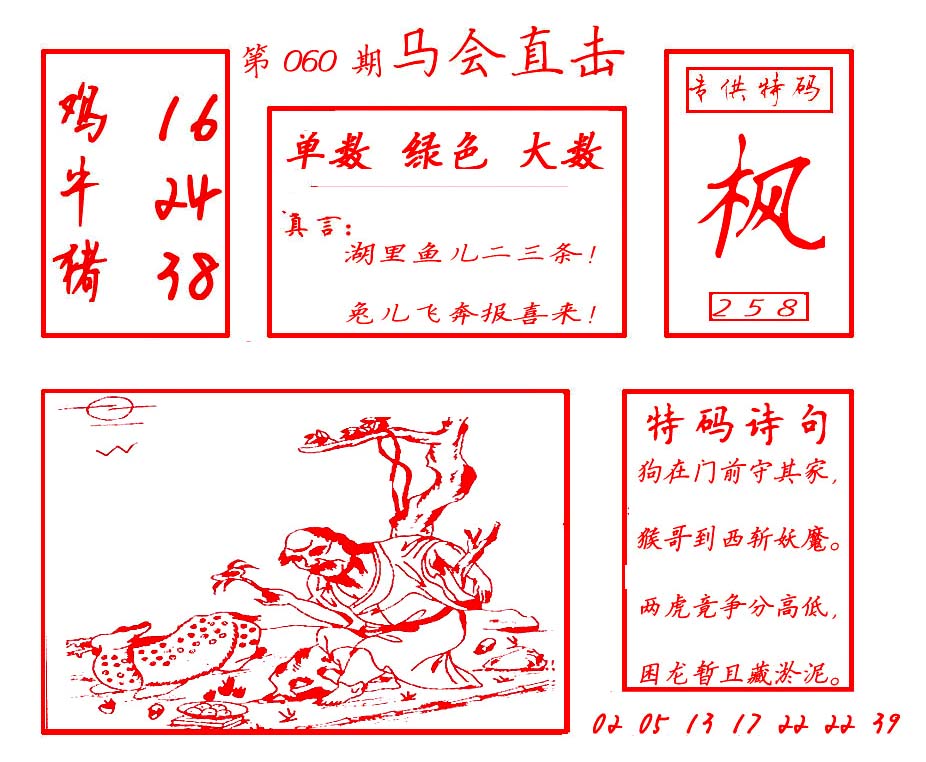 第 060 期 马会直击
鸡 16
牛 24
猪 38
单数 绿色 大数
真言:
湖里鱼儿二三条!
兔儿飞奔报喜来!
专供特码
枫
258
特码诗句
狗在门前守其家,
猴哥到西斩妖魔。
两虎竞争分高低,
困龙暂且藏淤泥。
02 05 13 17 22 22 39